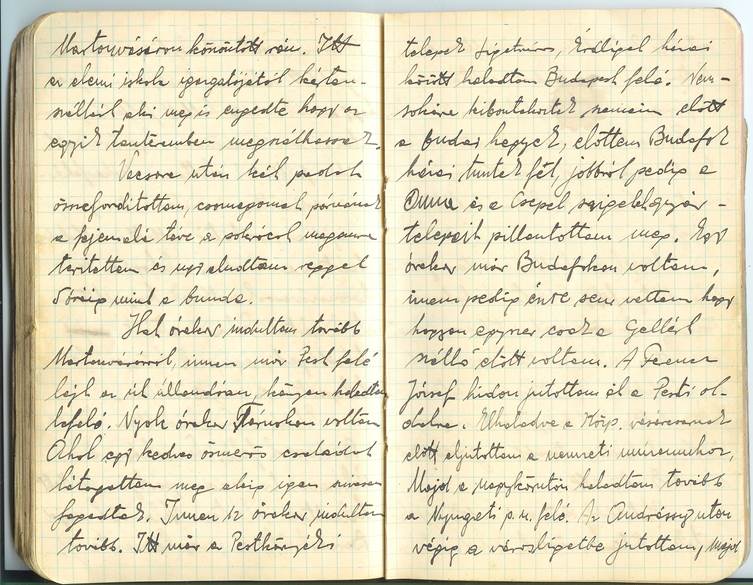 Martonvásáron között rám. Itt
az elemi iskola igazgatójától kértem
szállást aki meg is engedte hogy az
egyik tanteremben megszálhassak.
Vacsora után két padot
összefordítottam, csomagomat párnának
a fejem alá téve a pokrócot magamra
terítettem és ugy aludtam reggel
5 óráig mint a bunda.
Hat órakor indultam tovább
Martonvásárról, innen már Pest felé
lejt az út állandóan, könnyen haladtam
lefelé. Nyolc órakor Tárnokon voltam
Ahol egy kedves ösmerős családot
látogattam meg akik igen szivesen
fogadtak. Innen 12 órakor indultam
tovább. Itt már a Pestkörnyéki
telepek Érdliget házai
között haladtam Budapest felé. Nem-
sokára kibontakoztak szemeim előtt
a budai hegyek, előttem Budafok
házai tüntek fel, jobbról pedig a
Duna és a Csepel sziget gyár-
telepeit pillantottam meg. Egy
órakor már Budafokon voltam,
innen pedig észre sem vettem hogy
hogyan egyszer csak a Gellért
szálló előtt voltam. A Ferenc
József hidon jutottam át a Pesti ol-
dalra. Elhaladva a Közp. vásárcsarnok
előtt eljutottam a nemzeti múzeumhoz,
Majd a nagykörúton haladtam tovább
a Nyugati p.u. felé. Az Andrássy uton
végig a városligetbe jutottam, majd